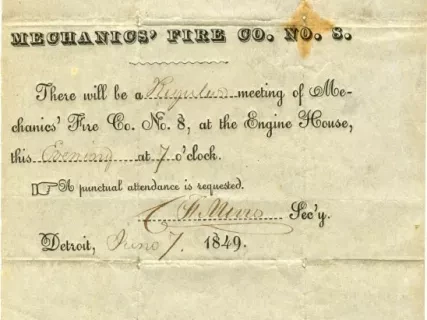 MECHANICS' FIRE CO. NO. 8.
There will be a Regular meeting of Me-
chanics' Fire Co. No. 8, at the Engine House,
this Evening at 7 o'clock.
☞A punctual attendance is requested.
C H Muro Sec'y.
Detroit, June 7. 1849.